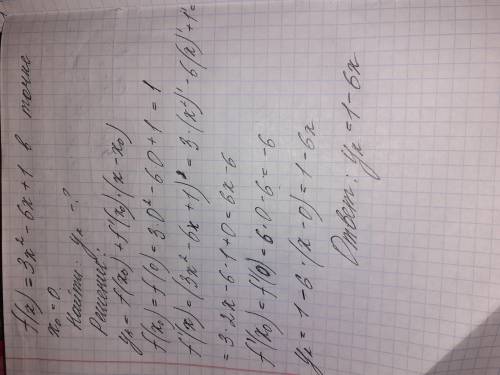 f(x) = 3x² - 6x + 1 в точке
x₀ = 0.
Найти: yк - ?
Решение:
yк = f(x₀) + f'(x₀)·(x - x₀)
f(x₀) = f(0) = 3·0² - 6·0 + 1 = 1
f'(x₀) = (3x² - 6x + 1)' = 3·(x²)' - 6(x)' + 1' =
= 3·2x - 6·1 + 0 = 6x - 6
f'(x₀) = f'(0) = 6·0 - 6 = -6
yк = 1 - 6·(x - 0) = 1 - 6x
Ответ: yк = 1 - 6x